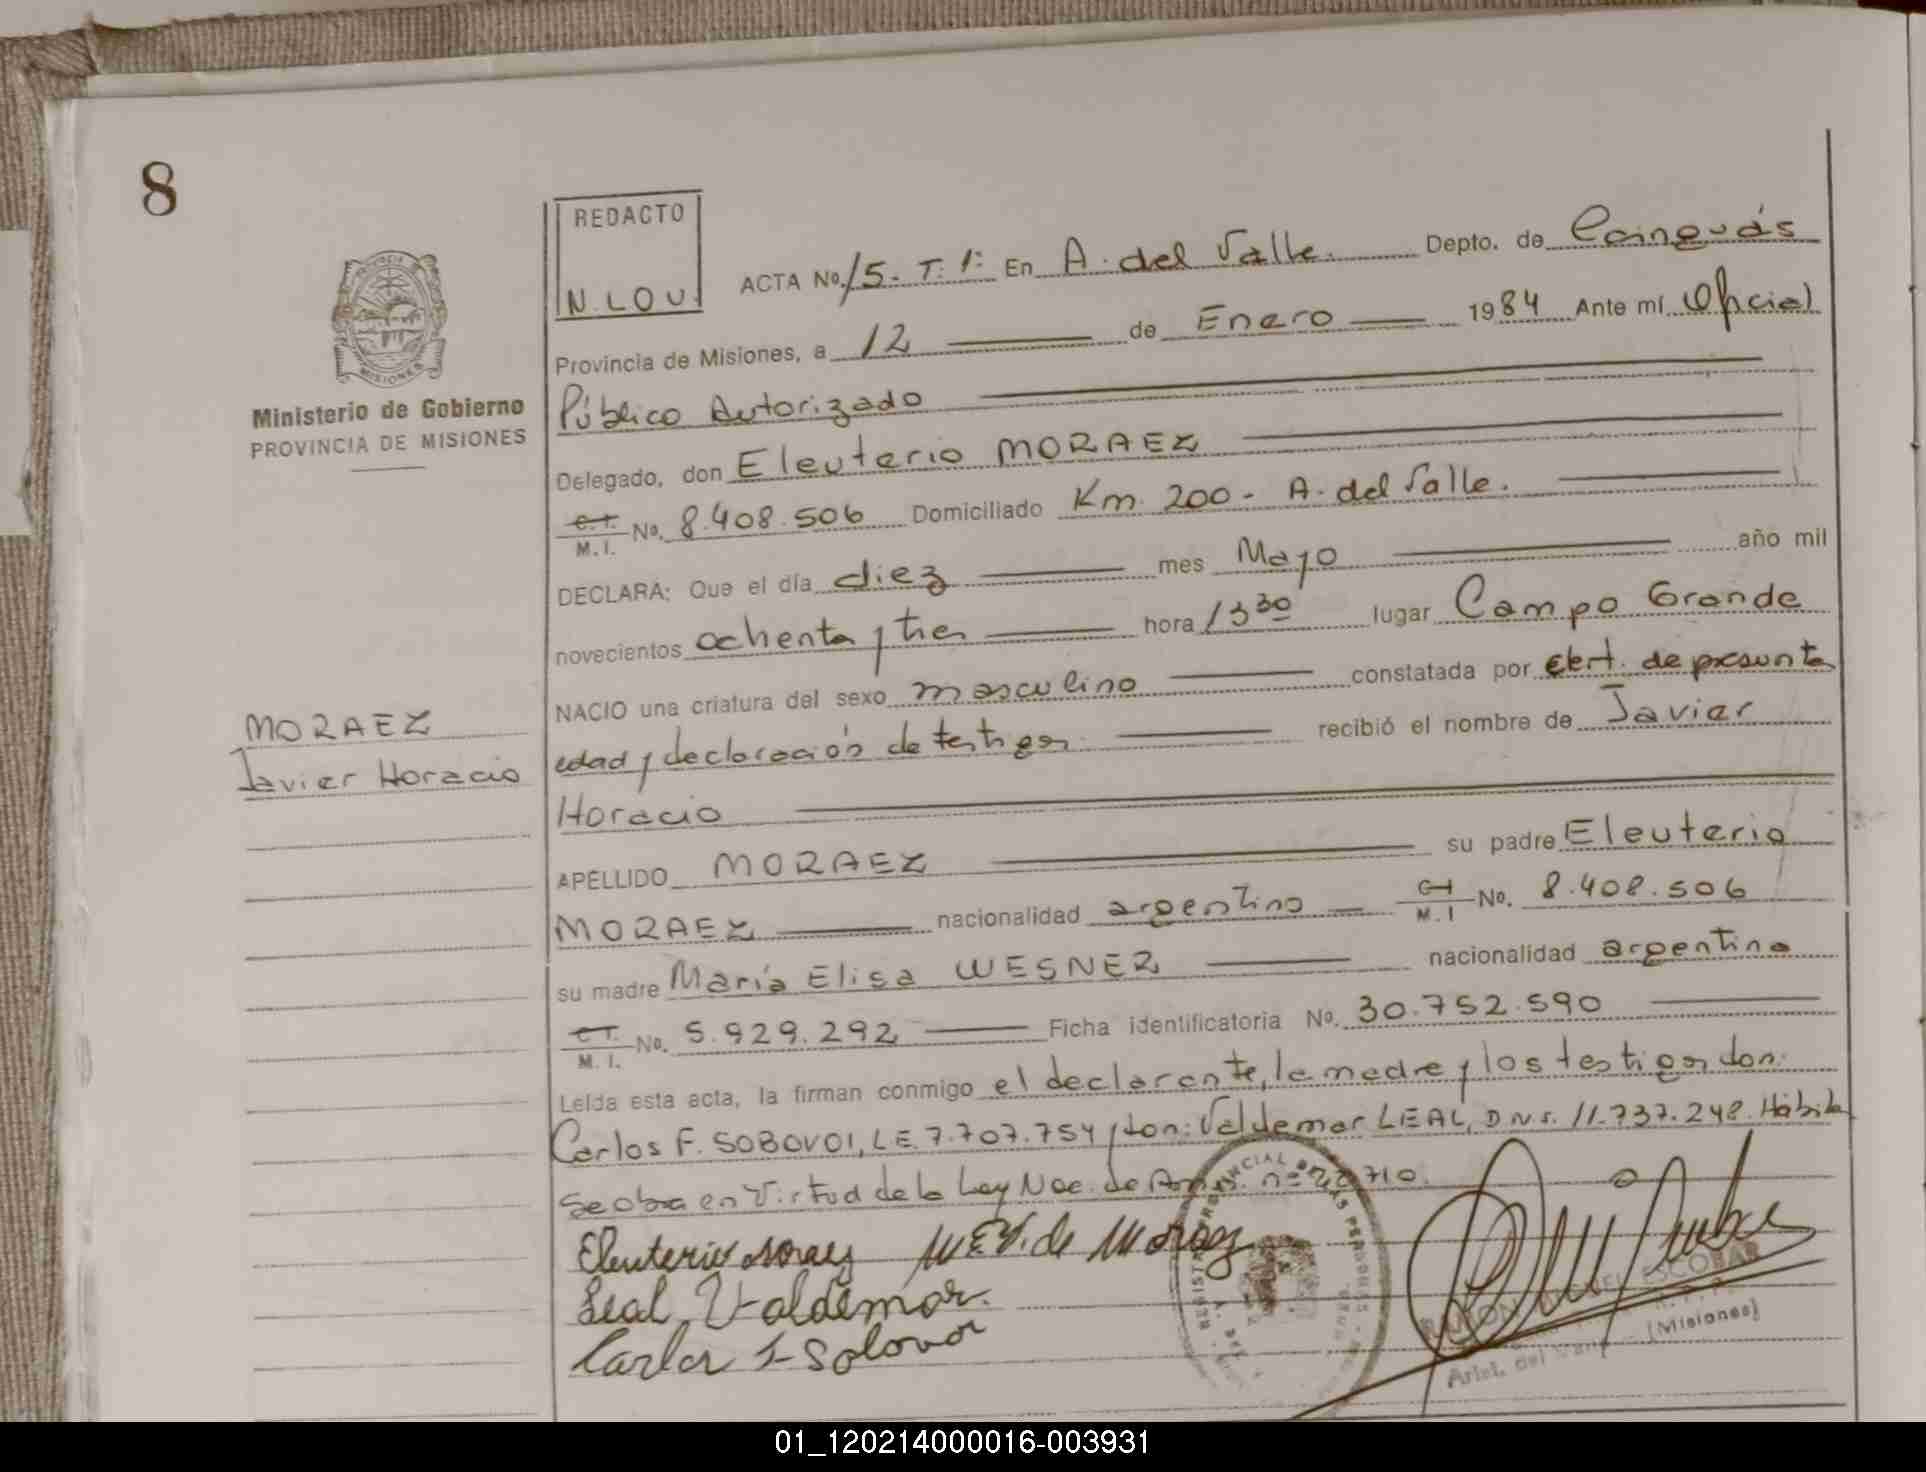 8
REDACTO
N. LOU.
ACTA No. 15. T: 1: En A. del Valle. Depto. de Cainguás
Provincia de Misiones, a 12 de Enero 1984 Ante mí Oficial
Ministerio de Gobierno
PROVINCIA DE MISIONES
MISIONES
Público Autorizado
Delegado, don Eleuterio MORAEZ
C.I. M.I. No. 8.408.506 Domiciliado Km. 200 - A. del Valle.
DECLARA: Que el día diez mes Mayo año mil
novecientos ochenta y tres hora 13 30 lugar Campo Grande
NACIO una criatura del sexo masculino constatada por cert. de presunta
MORAEZ
Javier Horacio
edad y declaración de testigos. recibió el nombre de Javier
Horacio
APELLIDO MORAEZ su padre Eleuterio
MORAEZ nacionalidad argentino C.I. M.I No. 8.408.506
su madre María Elisa WESNER nacionalidad argentina
C.I. M.I. No. 5.929.292 Ficha identificatoria No. 30.752.590
Leída esta acta, la firman conmigo el declarante, la madre y los testigos don:
Carlos F. SOBOVOI, L.E. 7.707.754 y don: Valdemar LEAL, D.N.I. 11.737.248. Habita
Se obra en Virtud de la Ley Nac. de nº 22.710.
Eleuterio Moraez M.E.W. de Moraez
Leal Valdemar.
Carlos F
REGISTRO PROVINCIAL DE LAS PERSONAS
RAMON ESCOBAR
(Misiones)
Arist. del Valle
01_120214000016-003931